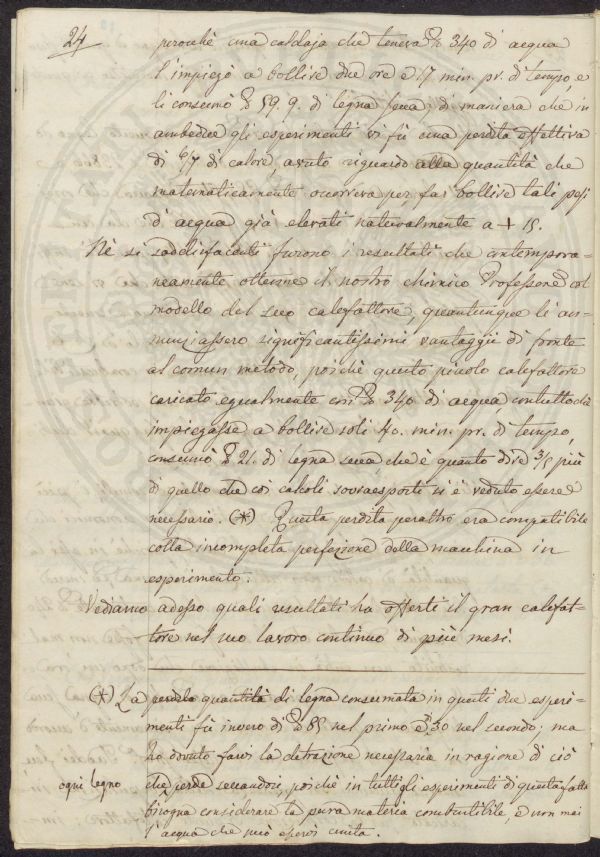 24
perocchè una caldaja che teneva ℔ 340 d'acqua
l'impiegò a bollire due ore e 17 min. pr. di tempo, e
li consumò ℔ 59. 9. di legna secca; di maniera che in
ambedue gli esperimenti vi fù una perdita effettiva
di 6/7 di calore, avuto riguardo alla quantità che
matematicamente occorreva per far bollire tali pesi
d'acqua già elevati naturalmente a + 15.
Nè sì soddisfacenti furono i resultati che contempora=
neamente ottenne il nostro chimico Professore col
modello del suo calefattore, quantunque li an=
nunziassero significantissimi vantaggi di fronte
al comun metodo, poichè questo piccolo calefattore
caricato egualmente con ℔ 340 di acqua, contuttochè
impiegasse a bollire soli 40. min. pr. di tempo,
consumò ℔ 21. di legna secca che è quanto dire 3/5 più
di quello che coi calcoli sovraesposti si è veduto essere
necessario. (*) Questa perdita peraltro era compatibile
colla incompleta perfezione della macchina in
esperimento.
Vediamo adesso quali resultati ha offerti il gran calefat=
tore nel suo lavoro continuo di più mesi.
(*) La perdita quantità di legna consumata in questi due esperi=
menti fù invero di ℔ 85 nel primo e ℔ 30 nel secondo; ma
ho dovuto farvi la detrazione necessaria in ragione di ciò
ogni legno
che perde seccandosi, poichè in tutti gli esperimenti di questa fatta
bisogna considerare la pura materia combustibile, e non mai
l'acqua che può esservi unita.